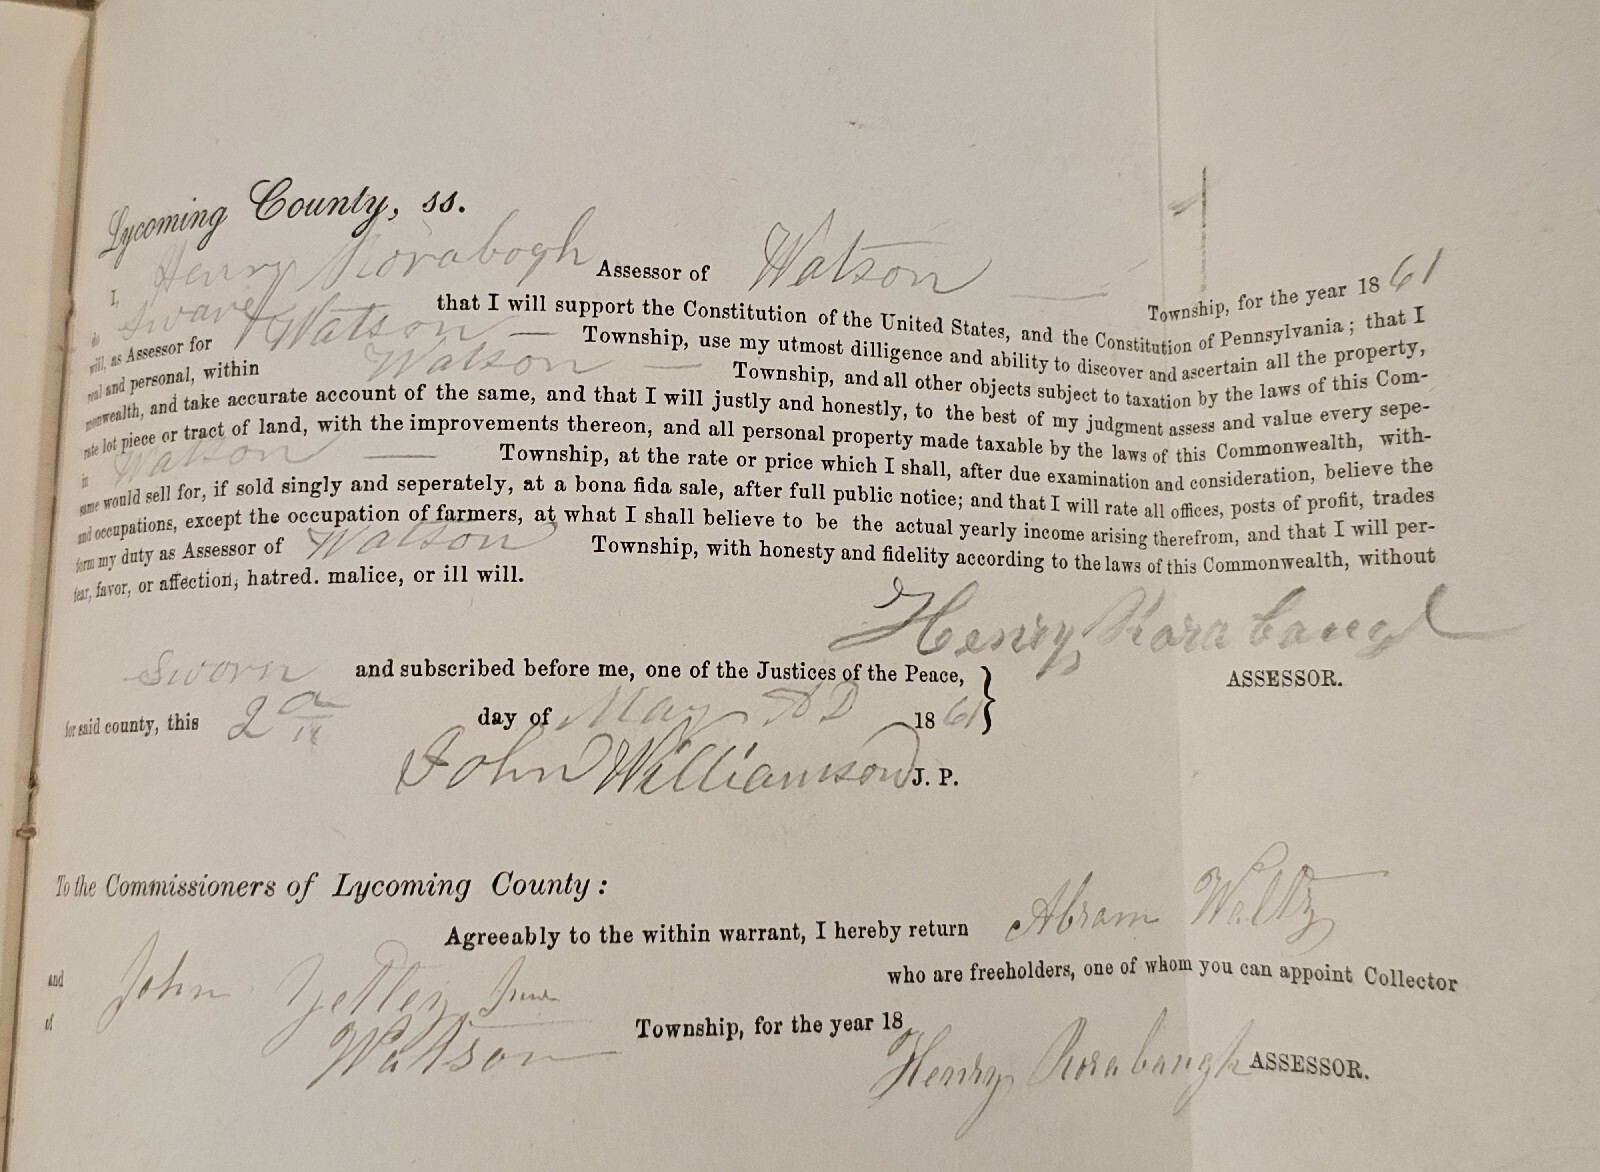 Lycoming County, ss.
I, Henry Rorabogh Assessor of Watson Township, for the year 1861
do Swarе that I will support the Constitution of the United States, and the Constitution of Pennsylvania; that I
will, as Assessor for Watson Township, use my utmost dilligence and ability to discover and ascertain all the property,
real and personal, within Watson Township, and all other objects subject to taxation by the laws of this Com-
monwealth, and take accurate account of the same, and that I will justly and honestly, to the best of my judgment assess and value every sepe-
rate lot piece or tract of land, with the improvements thereon, and all personal property made taxable by the laws of this Commonwealth, with-
in Watson Township, at the rate or price which I shall, after due examination and consideration, believe the
same would sell for, if sold singly and seperately, at a bona fida sale, after full public notice; and that I will rate all offices, posts of profit, trades
and occupations, except the occupation of farmers, at what I shall believe to be the actual yearly income arising therefrom, and that I will per-
form my duty as Assessor of Watson Township, with honesty and fidelity according to the laws of this Commonwealth, without
fear, favor, or affection, hatred. malice, or ill will.
Henry Rorabaugh
ASSESSOR.
Sworn and subscribed before me, one of the Justices of the Peace,
for said county, this 2d day of May AD 1861
John Williamson J. P.
To the Commissioners of Lycoming County:
Agreeably to the within warrant, I hereby return Abram Waltz
and John Yetley who are freeholders, one of whom you can appoint Collector
of Watson Township, for the year 18
Henry Rorabaugh ASSESSOR.